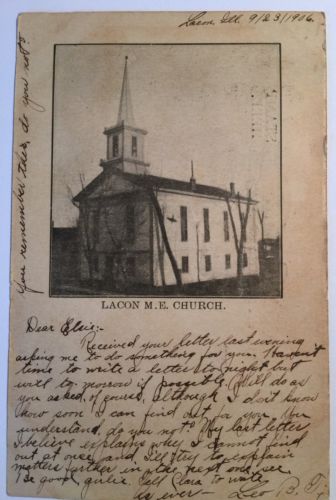 Lacon, Ill. 9/23/1906.
You remember this, do you not?
LACON M.E. CHURCH.
Dear Elsie:-
Received your letter last evening
asking me to do something for you. Haven't
time to write a letter to-night but
will to-morrow if possible. Will do as
you asked, of course, although I don't know
how soon I can find out for you. You
understand, do you not? My last letter,
I believe explains why I cannot find
out at once, and I'll try to explain
matters further in the next one.
Be good girlie. Tell Clara to write
As ever